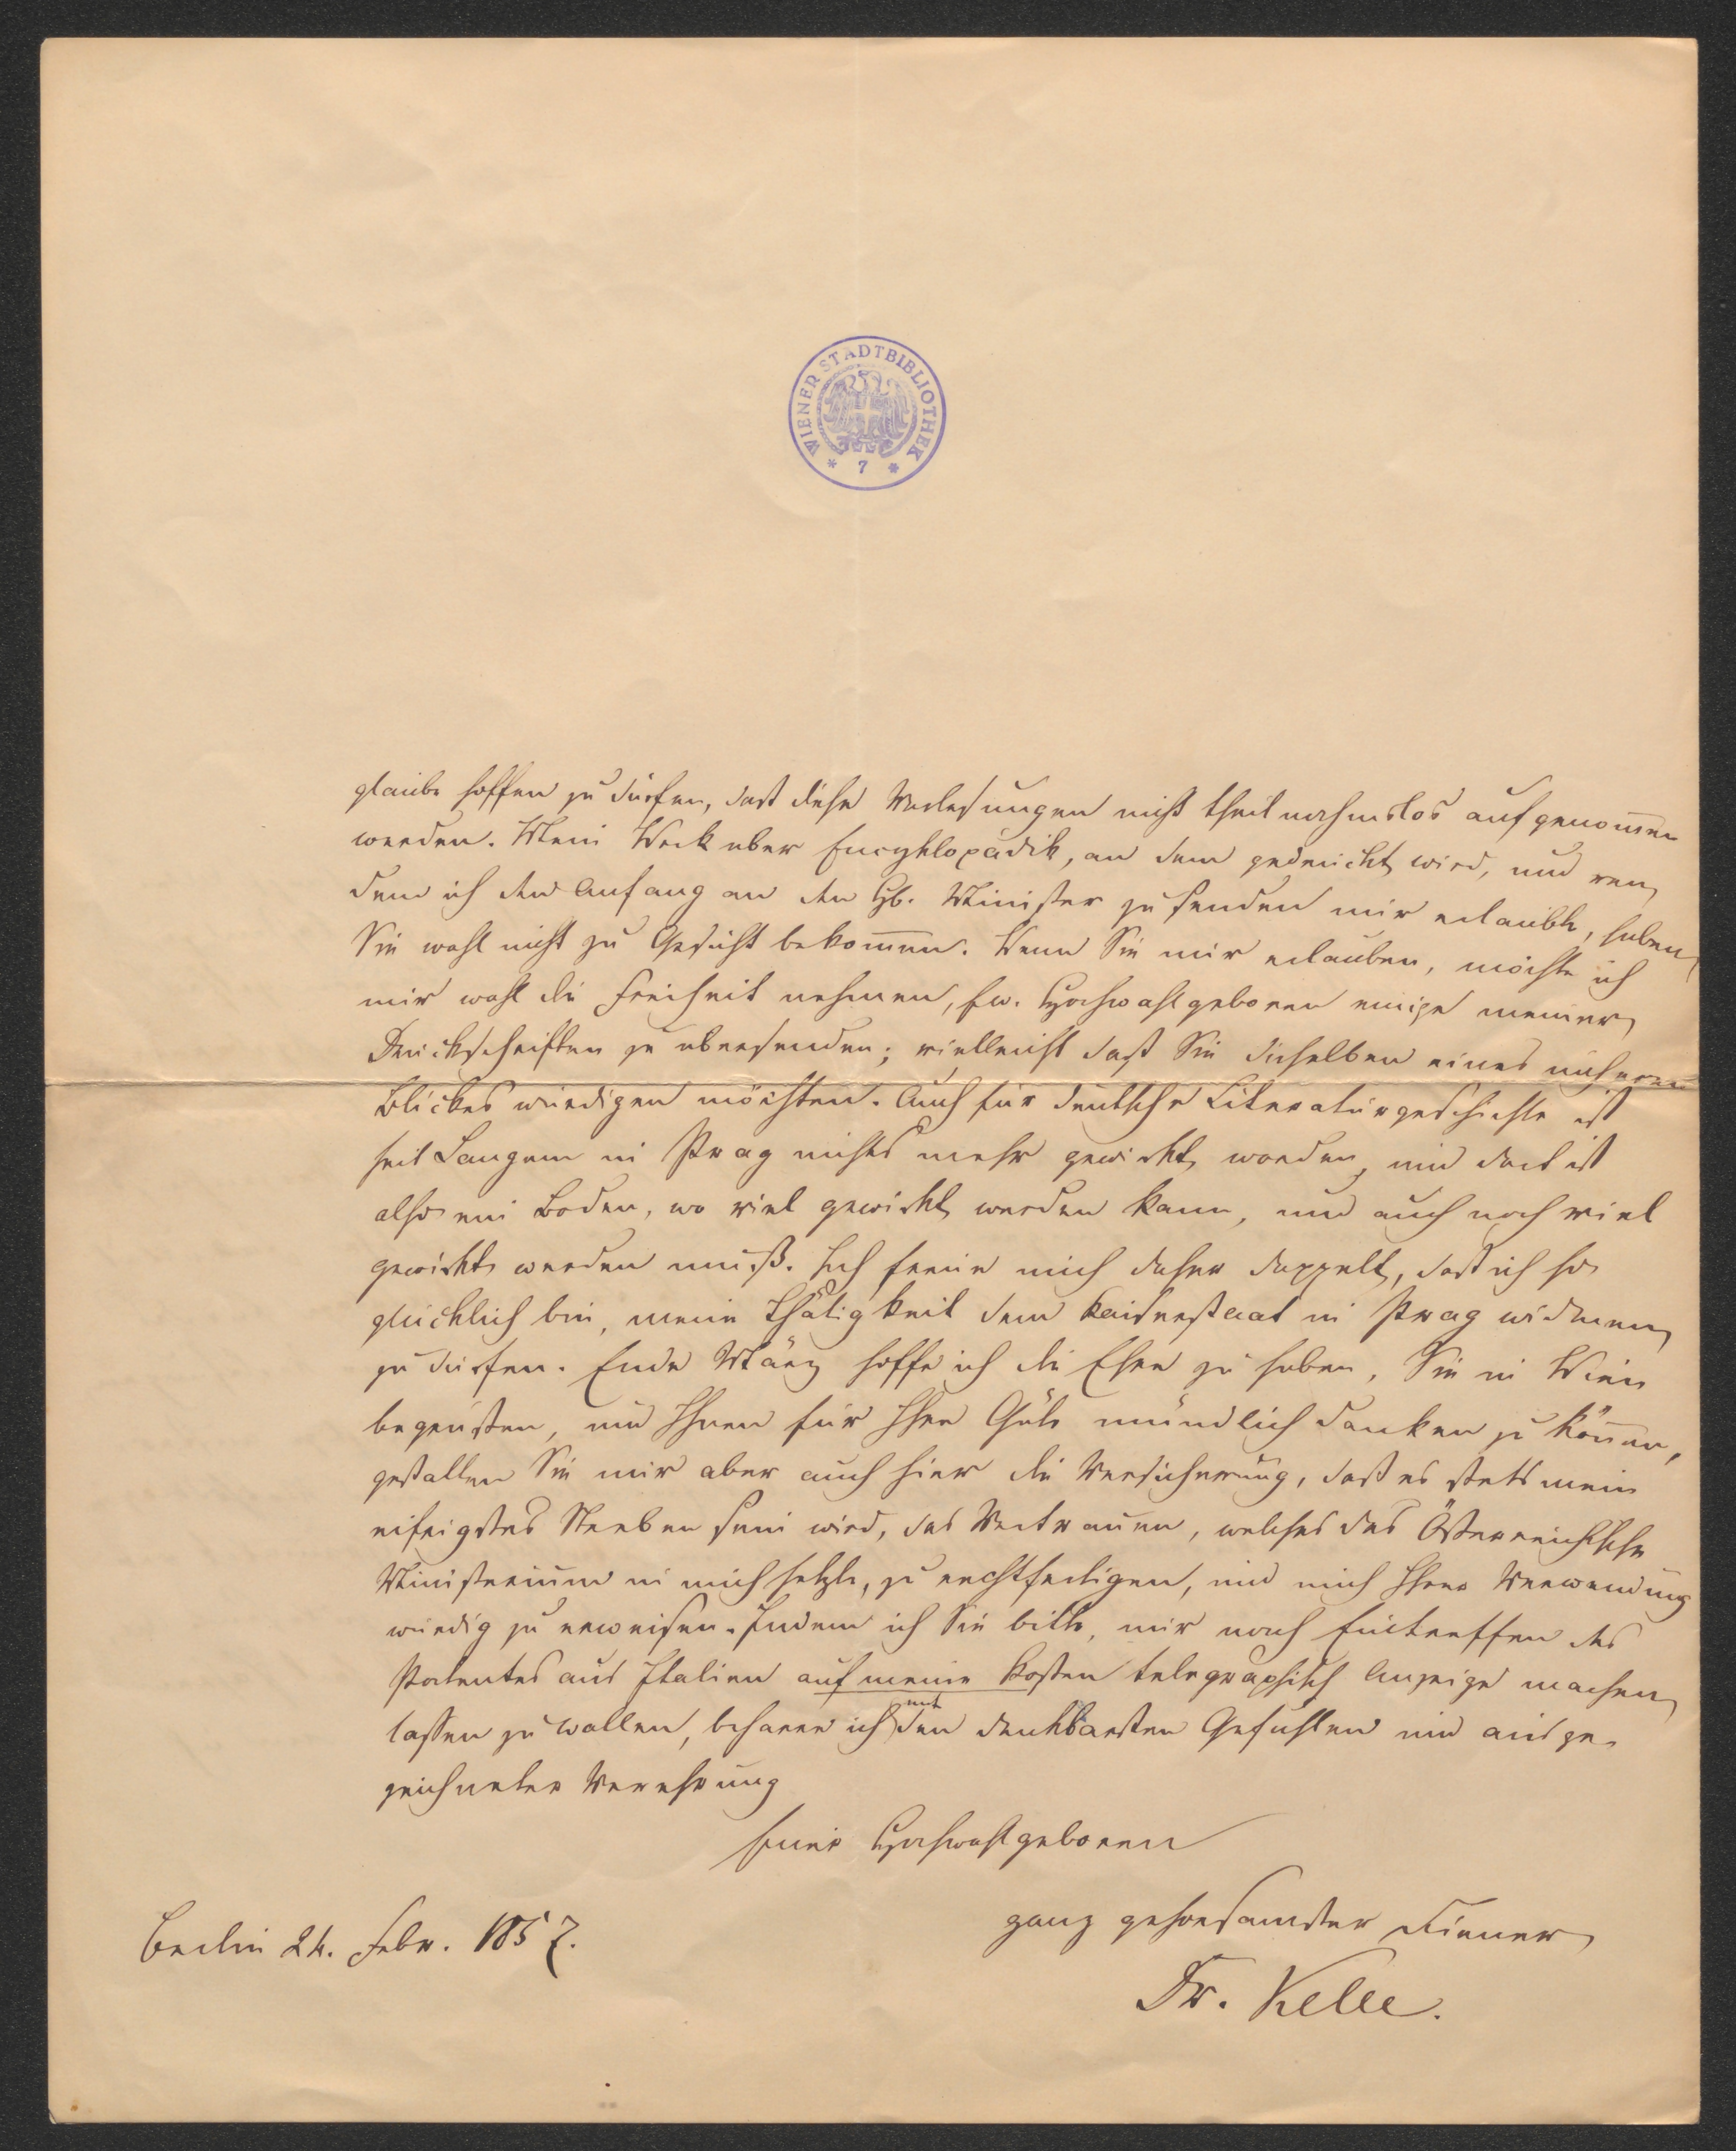 WIENER STADTBIBLIOTHEK
* 7 *
glaube hoffen zu dürfen, daß diese Vorlesungen nicht theilnahmslos aufgenom̄en
werden. Mein Werk über Encyklopädik, an dem gedruckt wird, und von
dem ich den Anfang an den Hb. Minister zu senden mir erlaubte, haben
Sie wohl nicht zu Gesicht bekom̄en. Wenn Sie mir erlauben, möchte ich
mir wohl die Freiheit nehmen, Ew. Hochwohlgeboren einige meiner
Druckschriften zu übersenden; vielleicht daß Sie dieselben eines näheren
Blickes würdigen möchten. Auch für deutsche Literaturgeschichte ist
seit Langem in Prag nichts mehr gewirkt worden, und dort ist
also ein Boden, wo viel gewirkt werden kann, und auch noch viel
gewirkt werden muß. Ich freue mich daher doppelt, daß ich so
glücklich bin, meine Thätigkeit dem Kaiserstaat in Prag widmen
zu dürfen. Ende März hoffe ich die Ehre zu haben, Sie in Wien
begrüßen, und Ihnen für Ihre Güte mündlich danken zu kön̄en,
gestatten Sie mir aber auch hier die Versicherung, daß es stets mein
eifrigstes Streben sein wird, das Vertrauen, welches das Österreichische
Ministerium in mich setzte, zu rechtfertigen, und mich Ihrer Verwendung
würdig zu erweisen. Indem ich Sie bitte, mir nach Eintreffen des
Patentes aus Italien auf meine Kosten telegraphisch Anzeige machen
lassen zu wollen, beharre ich mit den dankbarsten Gefühlen und ausge-
zeichneter Verehrung
Euer Hochwohlgeboren
ganz gehorsamster Diener
Berlin 24. Febr. 1857.
Dr. Kelle.